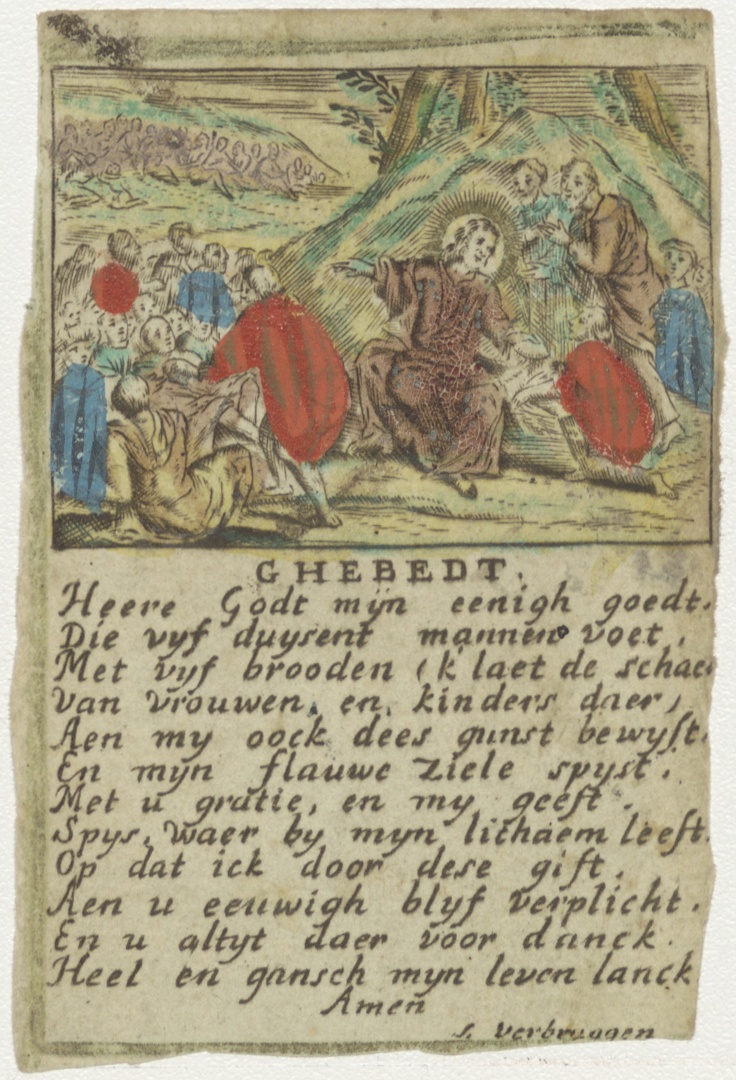 GHEBEDT.
Heere Godt mijn eenigh goedt.
Die vyf duysent mannen voet,
Met vyf brooden (k laet de schaer
van vrouwen, en, kinders daer)
Aen my oock dees gunst bewyst.
En mijn flauwe Ziele spyst.
Met u gratie, en my geeft.
Spys, waer by myn lichaem leeft.
Op dat ick door dese gift.
Aen u eeuwigh blyf verplicht.
En u altyt daer voor danck.
Heel en gansch myn leven lanck
Amen
s. verbruggen